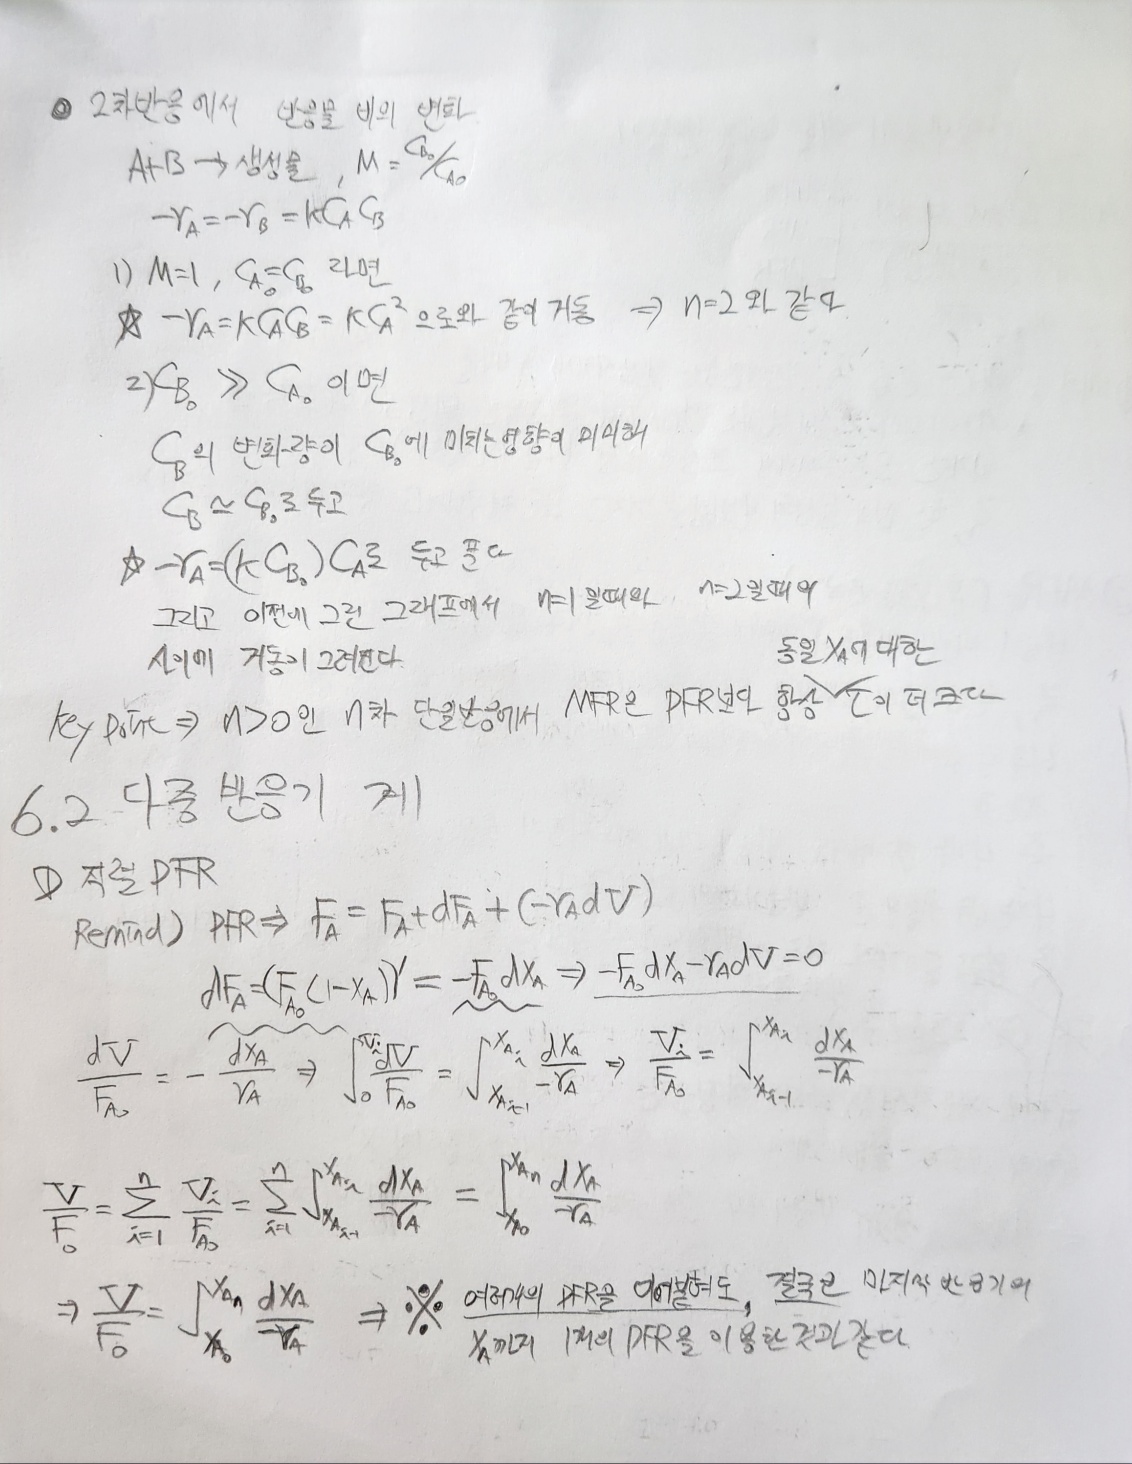 ● 2차반응에서 반응물 비의 변화
A+B → 생성물, M = C_B₀/C_A₀
-r_A = -r_B = kC_A C_B
1) M=1, C_A₀=C_B₀ 라면
☆ -r_A = kC_A C_B = kC_A² 으로와 같이 거동 ⇒ n=2 와 같다
2) C_B₀ ≫ C_A₀ 이면
C_B의 변화량이 C_B₀에 미치는영향이 미미해
C_B ≃ C_B₀로 두고
☆ -r_A = (kC_B₀)C_A로 두고 푼다
그리고 이전에 그린 그래프에서 n=1 일때와 n=2일때의
사이에 거동이 그려진다
동일 X_A에 대한
key point ⇒ n>0인 n차 단일반응에서 MFR은 PFR보다 항상 ∨ τ이 더 크다
6.2 다중 반응기 계
① 직렬 PFR
Remind) PFR ⇒ F_A = F_A + dF_A + (-r_A dV)
dF_A = (F_A₀(1-X_A))' = -F_A₀ dX_A ⇒ -F_A₀ dX_A - r_A dV = 0
dV/F_A₀ = - dX_A/r_A ⇒ ∫₀^{V_i} dV/F_A₀ = ∫_{X_A i-1}^{X_A i} dX_A/-r_A ⇒ V_i/F_A₀ = ∫_{X_A i-1}^{X_A i} dX_A/-r_A
V/F₀ = Σ_{i=1}^{n} V_i/F_A₀ = Σ_{i=1}^{n} ∫_{X_A i-1}^{X_A i} dX_A/-r_A = ∫_{X_A₀}^{X_A n} dX_A/-r_A
⇒ V/F₀ = ∫_{X_A₀}^{X_A n} dX_A/-r_A ⇒ ※ 여러개의 PFR을 이어붙혀도, 결국은 마지막 반응기의
X_A까지 1개의 PFR을 이용한 것과 같다